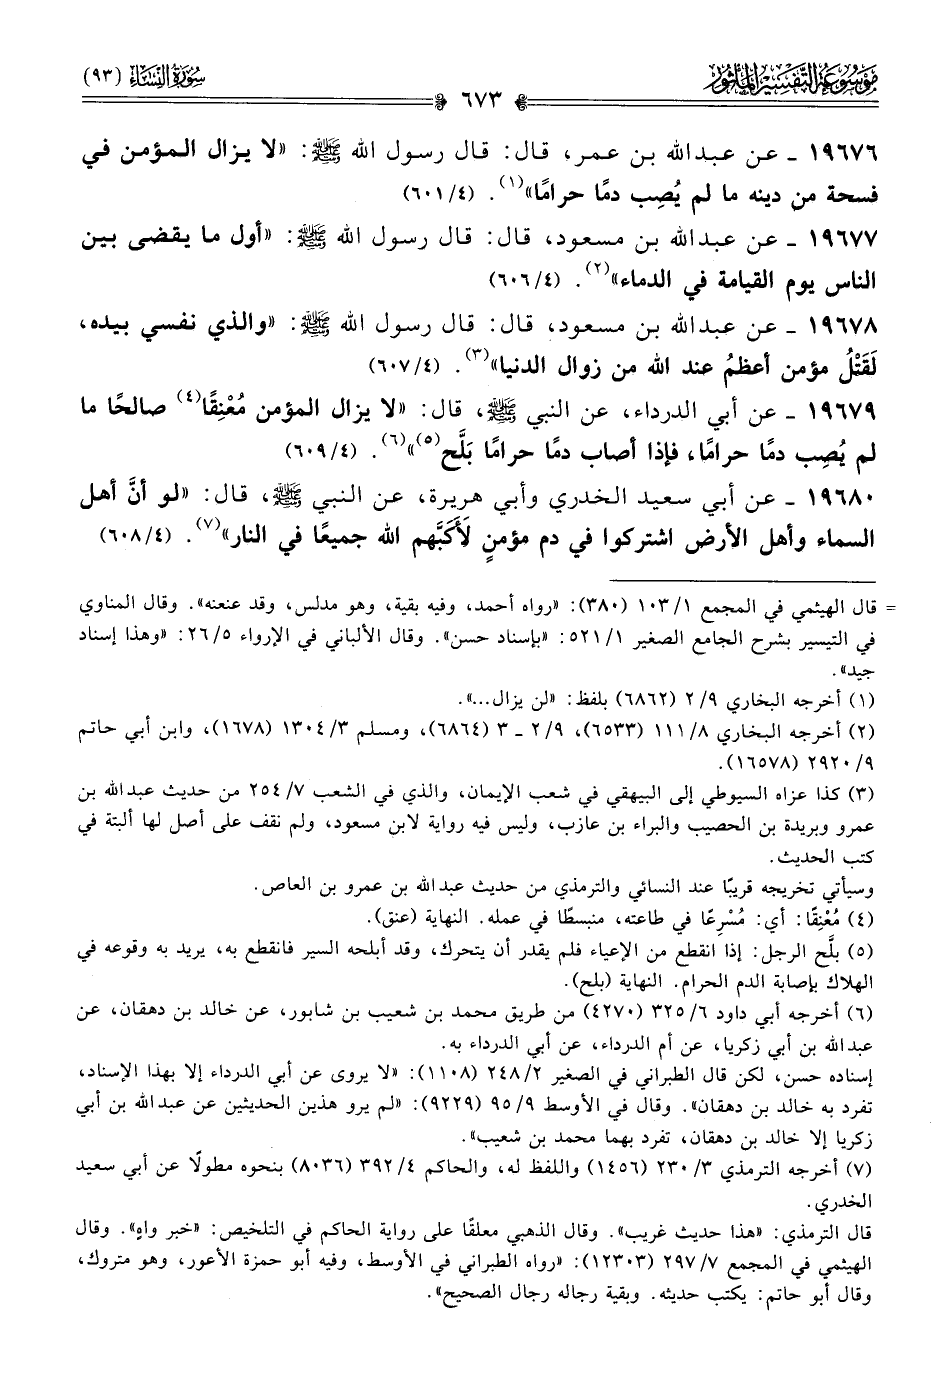 موسوعة التفسير المأثور
سورة النساء (٩٣)
٦٧٣
١٩٦٧٦ ـ عن عبدالله بن عمر، قال: قال رسول الله ﷺ: «لا يزال المؤمن في
فسحة من دينه ما لم يُصِب دمًا حرامًا»(١). (٤/ ٦٠١)
١٩٦٧٧ ـ عن عبدالله بن مسعود، قال: قال رسول الله ﷺ: «أول ما يقضى بين
الناس يوم القيامة في الدماء»(٢). (٤/ ٦٠٦)
١٩٦٧٨ ـ عن عبدالله بن مسعود، قال: قال رسول الله ﷺ: «والذي نفسي بيده،
لَقَتْلُ مؤمن أعظمُ عند الله من زوال الدنيا»(٣). (٤/ ٦٠٧)
١٩٦٧٩ ـ عن أبي الدرداء، عن النبي ﷺ، قال: «لا يزال المؤمن مُعْنِقًا(٤) صالحًا ما
لم يُصِب دمًا حرامًا، فإذا أصاب دمًا حرامًا بَلَّح(٥)»(٦). (٤/ ٦٠٩)
١٩٦٨٠ ـ عن أبي سعيد الخدري وأبي هريرة، عن النبي ﷺ، قال: «لو أنَّ أهل
السماء وأهل الأرض اشتركوا في دم مؤمنٍ لَأَكبَّهم الله جميعًا في النار»(٧). (٤/ ٦٠٨)
= قال الهيثمي في المجمع ١/ ١٠٣ (٣٨٠): «رواه أحمد، وفيه بقية، وهو مدلس، وقد عنعنه». وقال المناوي
في التيسير بشرح الجامع الصغير ١/ ٥٢١: «بإسناد حسن». وقال الألباني في الإرواء ٥/ ٢٦: «وهذا إسناد
جيد».
(١) أخرجه البخاري ٩/ ٢ (٦٨٦٢) بلفظ: «لن يزال...».
(٢) أخرجه البخاري ٨/ ١١١ (٦٥٣٣)، ٩/ ٢ ـ ٣ (٦٨٦٤)، ومسلم ٣/ ١٣٠٤ (١٦٧٨)، وابن أبي حاتم
٩/ ٢٩٢٠ (١٦٥٧٨).
(٣) كذا عزاه السيوطي إلى البيهقي في شعب الإيمان، والذي في الشعب ٧/ ٢٥٤ من حديث عبدالله بن
عمرو وبريدة بن الحصيب والبراء بن عازب، وليس فيه رواية لابن مسعود، ولم نقف على أصل لها ألبتة في
كتب الحديث.
وسيأتي تخريجه قريبًا عند النسائي والترمذي من حديث عبدالله بن عمرو بن العاص.
(٤) مُعْنِقًا: أي: مُسْرِعًا في طاعته، منبسطًا في عمله. النهاية (عنق).
(٥) بلَّح الرجل: إذا انقطع من الإعياء فلم يقدر أن يتحرك، وقد أبلحه السير فانقطع به، يريد به وقوعه في
الهلاك بإصابة الدم الحرام. النهاية (بلح).
(٦) أخرجه أبي داود ٦/ ٣٢٥ (٤٢٧٠) من طريق محمد بن شعيب بن شابور، عن خالد بن دهقان، عن
عبدالله بن أبي زكريا، عن أم الدرداء، عن أبي الدرداء به.
إسناده حسن، لكن قال الطبراني في الصغير ٢/ ٢٤٨ (١١٠٨): «لا يروى عن أبي الدرداء إلا بهذا الإسناد،
تفرد به خالد بن دهقان». وقال في الأوسط ٩/ ٩٥ (٩٢٢٩): «لم يرو هذين الحديثين عن عبدالله بن أبي
زكريا إلا خالد بن دهقان، تفرد بهما محمد بن شعيب».
(٧) أخرجه الترمذي ٣/ ٢٣٠ (١٤٥٦) واللفظ له، والحاكم ٤/ ٣٩٢ (٨٠٣٦) بنحوه مطولًا عن أبي سعيد
الخدري.
قال الترمذي: «هذا حديث غريب». وقال الذهبي معلقًا على رواية الحاكم في التلخيص: «خبر واهٍ». وقال
الهيثمي في المجمع ٧/ ٢٩٧ (١٢٣٠٣): «رواه الطبراني في الأوسط، وفيه أبو حمزة الأعور، وهو متروك،
وقال أبو حاتم: يكتب حديثه. وبقية رجاله رجال الصحيح».